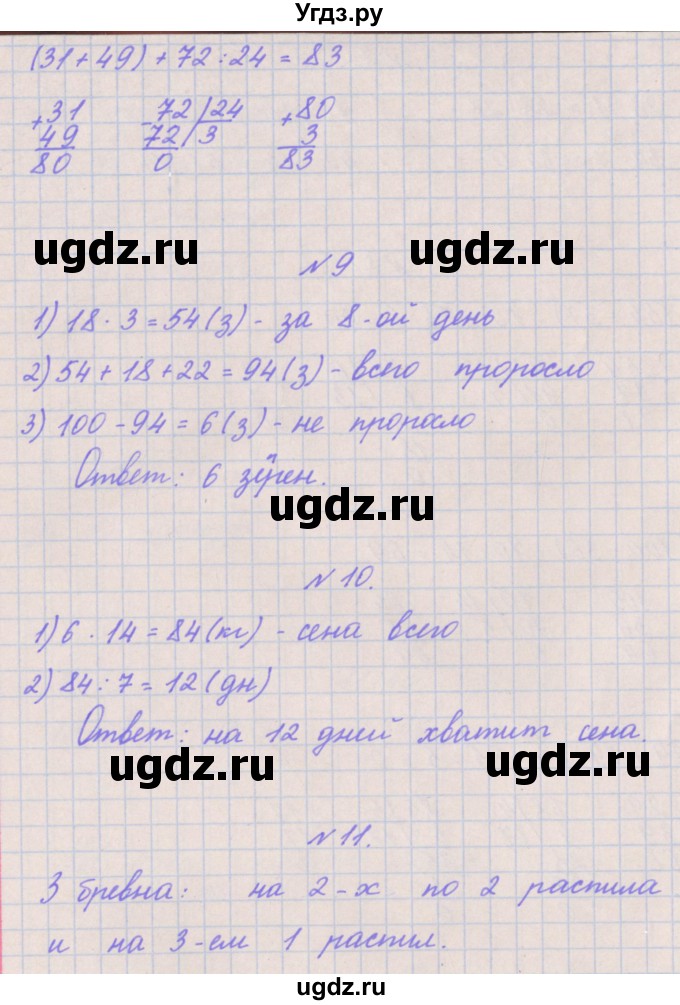 Угдз.ру
(31+49)+72:24=83
+31 -72|24 +80
49 72|3 3
80 0 83
ugdz.ru ugdz.ru
№9
1) 18·3=54(з)- за 8-ой день
2) 54+18+22=94(з)- всего проросло
3) 100-94=6(з)- не проросло
Ответ: 6 зёрен.
ugdz.ru
№10.
1) 6·14=84(кг)- сена всего
2) 84:7=12(дн)
Ответ: на 12 дней хватит сена.
ugdz.ru ugdz.ru
№11.
3 бревна: на 2-х по 2 распила
и на 3-ем 1 распил.
ugdz.ru